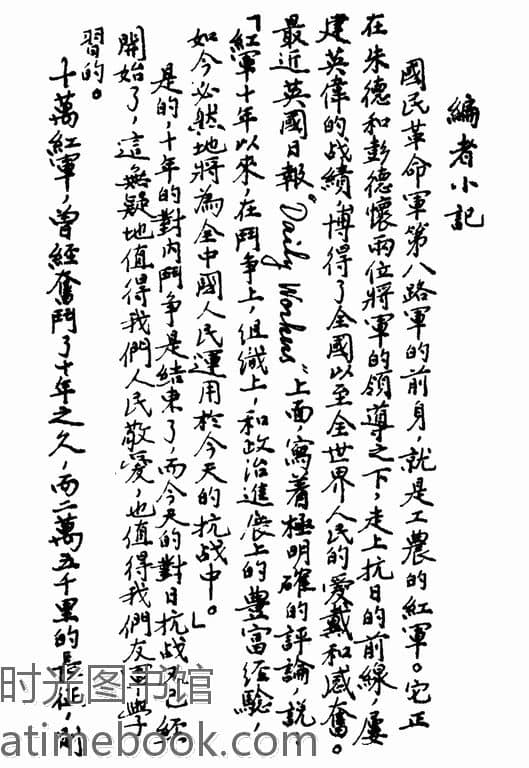 編者小記
國民革命軍第八路軍的前身，就是工農的紅軍。它正
在朱德和彭德懷兩位將軍的領導之下，走上抗日的前線，屢
建英偉的战績，博得了全國以至全世界人民的愛戴和感奮。
最近英國日報"Daily Workers"上面，寫着極明確的評論，説，
「紅軍十年以來，在鬥争上，組織上，和政治進展上的豊富经驗，
如今必然地將為全中國人民運用於今天的抗战中。」
是的，十年的對內鬥争是結束了，而今天的對日抗战
開始了，這無疑地值得我們人民敬愛，也值得我們友軍學
習的。
十萬紅軍，曾經奮鬥了十年之久，而二萬五千里的長征，
时光图书馆
atimebook.com